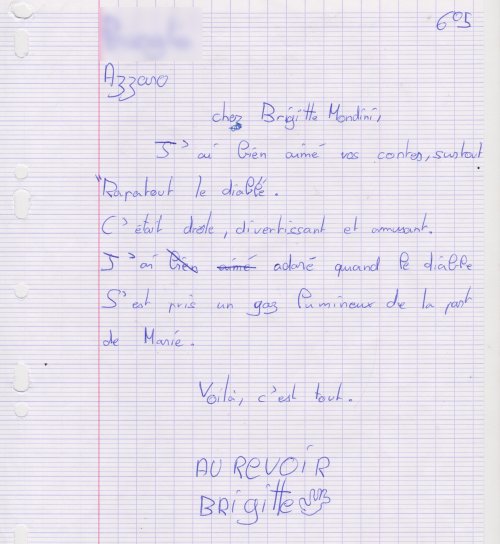 605
Azzano
chez Brigitte Mondini,
J'ai bien aimé vos contes, surtout
"Rapatout le diablé.
C'était drole, divertissant et amusant.
J'ai bien aimé adoré quand le diable
S'est pris un gaz lumineux de la part
de Marie.
Voilà, c'est tout.
AU REVOIR
BRigitte